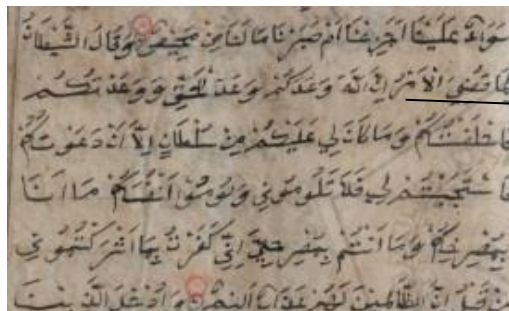 سَوَآءٌ عَلَيْنَا اَجَزِعْنَا اَمْ صَبَرْنَا مَا لَنَا مِنْ مَحِيصٍ وَقَالَ الشَّيْطَانُ
لَمَّا قُضِىَ الْاَمْرُ اِنَّ اللّٰهَ وَعَدَكُمْ وَعْدَ الْحَقِّ وَوَعَدْتُكُمْ
فَاَخْلَفْتُكُمْ وَمَا كَانَ لِي عَلَيْكُمْ مِنْ سُلْطَانٍ اِلَّا اَنْ دَعَوْتُكُمْ
فَاسْتَجَبْتُمْ لِي فَلَا تَلُومُونِي وَلُومُوا اَنْفُسَكُمْ مَا اَنَا
بِمُصْرِخِكُمْ وَمَا اَنْتُمْ بِمُصْرِخِيَّ اِنِّي كَفَرْتُ بِمَا اَشْرَكْتُمُونِي
مِنْ قَبْلُ اِنَّ الظَّالِمِينَ لَهُمْ عَذَابٌ اَلِيمٌ وَاُدْخِلَ الَّذِينَ